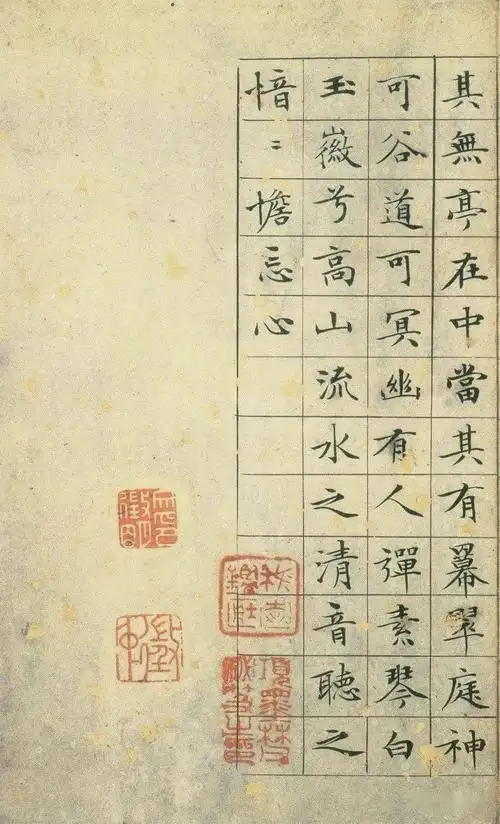 其無亭在中當其有羃翠庭神
可谷道可冥幽有人彈素琴白
玉徽兮高山流水之清音聽之
愔〻憺忘心
項墨林父秘笈之印